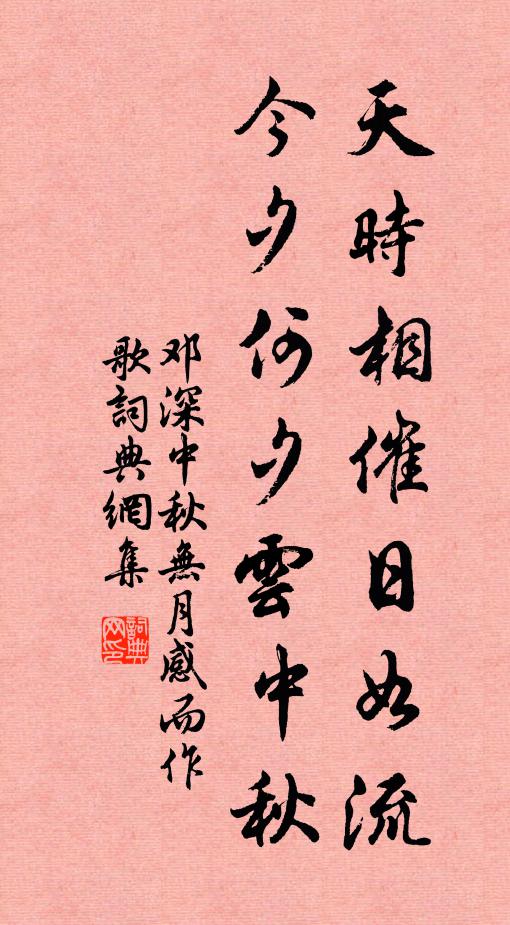 天時相催日如流
今夕何夕雲中秋
邓深中秋無月感而作
歌詞典網集
詞典
网印